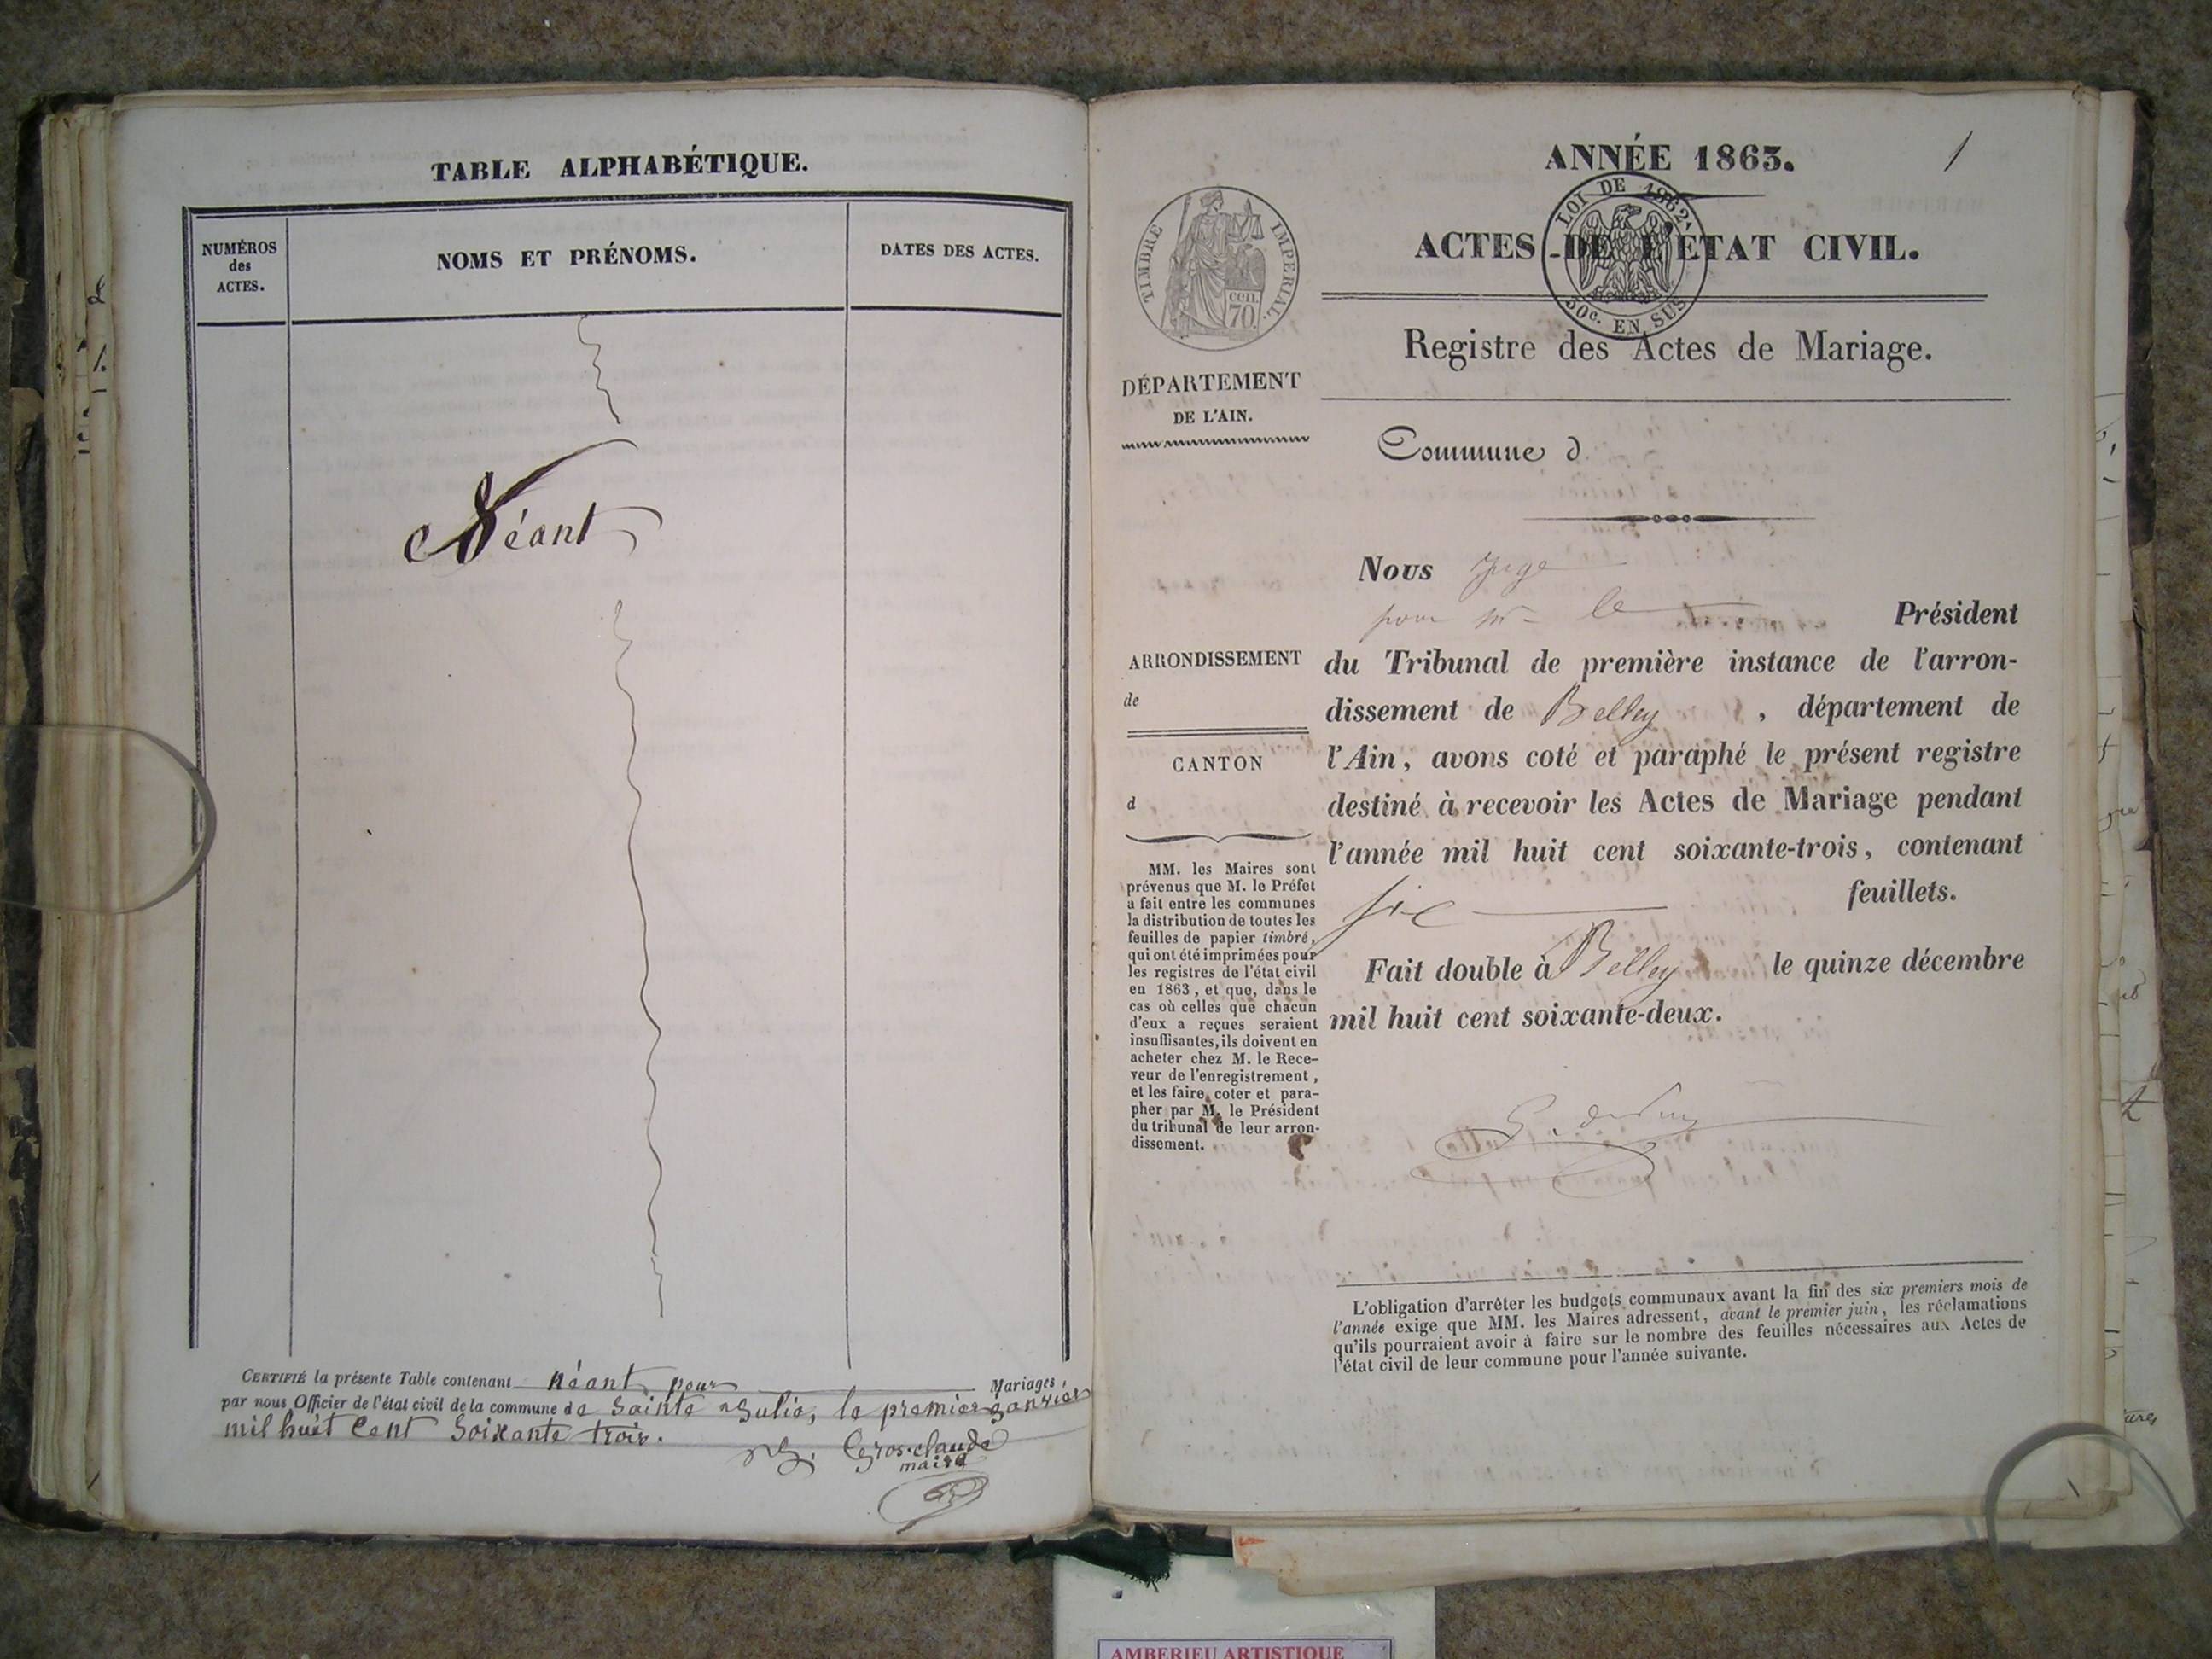 TABLE ALPHABÉTIQUE.
NUMÉROS
des
ACTES.
NOMS ET PRÉNOMS.
DATES DES ACTES.
Néant
CERTIFIÉ la présente Table contenant néant pour Mariages,
par nous Officier de l'état civil de la commune de Sainte Julie, le premier janvier
mil huit Cent Soixante trois.
Gros-claude
maire
1
ANNÉE 1863.
LOI DE 1862.
50c. EN SUS
ACTES DE L'ÉTAT CIVIL.
TIMBRE IMPÉRIAL.
cen.
70.
Registre des Actes de Mariage.
DÉPARTEMENT
DE L'AIN.
Commune d
Nous juge
pour mr le Président
ARRONDISSEMENT
de
CANTON
d
du Tribunal de première instance de l'arron-
dissement de Belley, département de
l'Ain, avons coté et paraphé le présent registre
destiné à recevoir les Actes de Mariage pendant
l'année mil huit cent soixante-trois, contenant
six feuillets.
Fait double à Belley le quinze décembre
mil huit cent soixante-deux.
MM. les Maires sont
prévenus que M. le Préfet
a fait entre les communes
la distribution de toutes les
feuilles de papier timbré,
qui ont été imprimées pour
les registres de l'état civil
en 1863, et que, dans le
cas où celles que chacun
d'eux a reçues seraient
insuffisantes, ils doivent en
acheter chez M. le Rece-
veur de l'enregistrement,
et les faire coter et para-
pher par M. le Président
du tribunal de leur arron-
dissement.
L'obligation d'arrêter les budgets communaux avant la fin des six premiers mois de
l'année exige que MM. les Maires adressent, avant le premier juin, les réclamations
qu'ils pourraient avoir à faire sur le nombre des feuilles nécessaires aux Actes de
l'état civil de leur commune pour l'année suivante.
AMBERIEU ARTISTIQUE